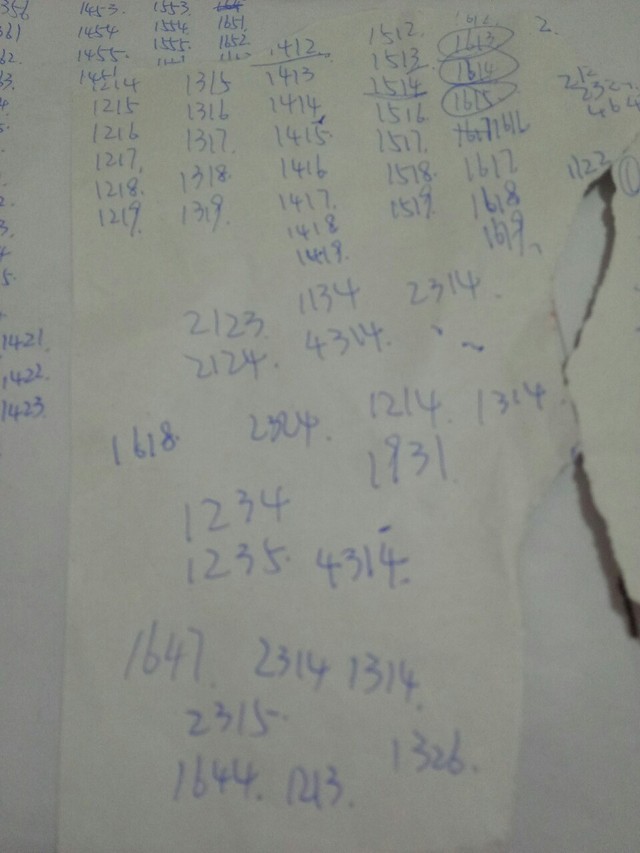 356 1453. 1553.
361 1454 1554. 1651.
62. 1455. 1555. 1652. 1412. 1512. 1613 2.
1214 1315 1413 1513. 1614
1215 1316 1414 1514 1615
1216 1317. 1415 1516 1616
1217. 1318. 1416 1517. 1617
1218. 1319. 1417. 1518. 1618
1219. 1418 1519. 1619
1419.
1122 ①
1134 2314.
2123 4314.
2124.
1421.
1422.
1423.
1214. 1314
1618. 1931
1234
1235. 4314.
1647. 2314 1314.
2315.
1326.
1644. 1213.